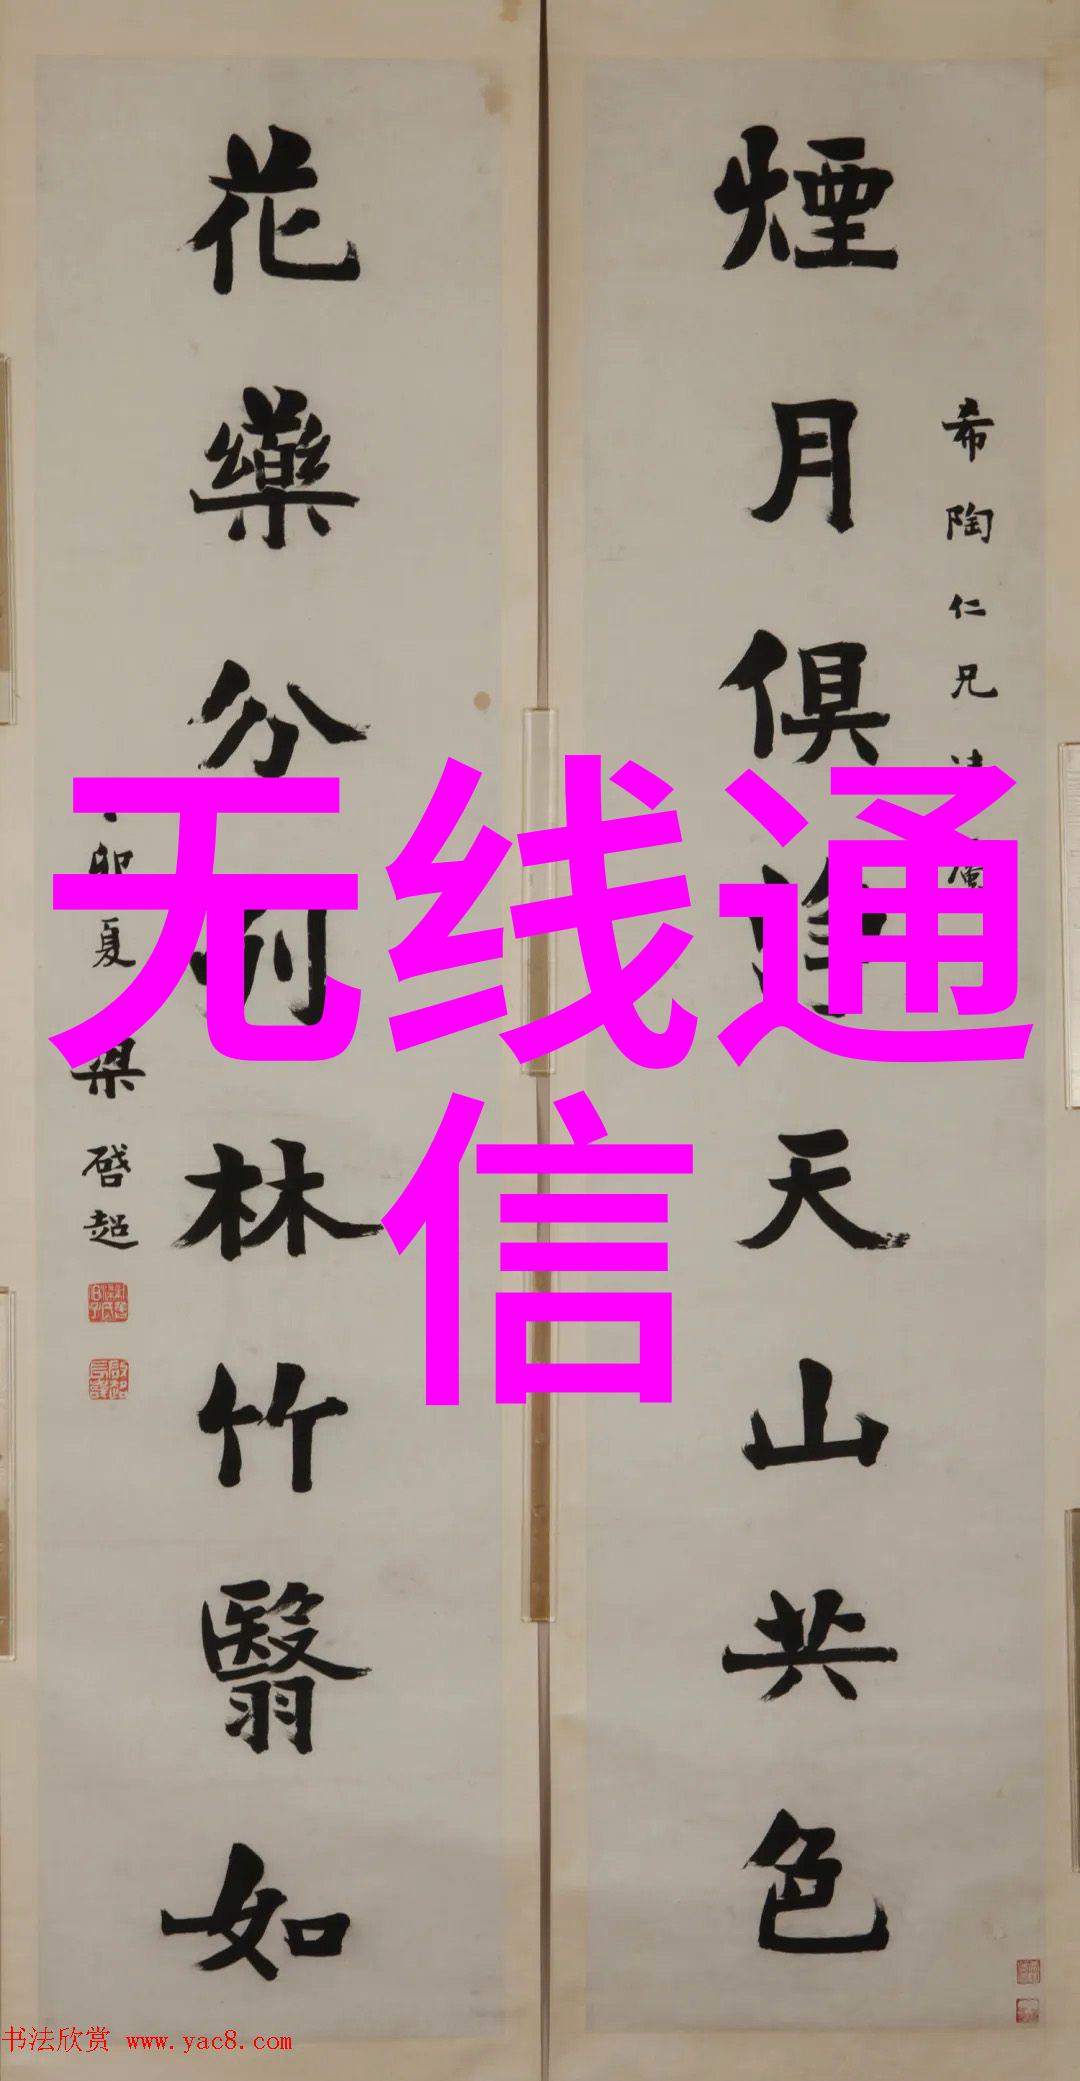 煙月俱進天山共色
希陶仁兄
花藥分列林竹翳如
卯夏梁啓超
无线通
信
书法欣赏 www.yac8.com